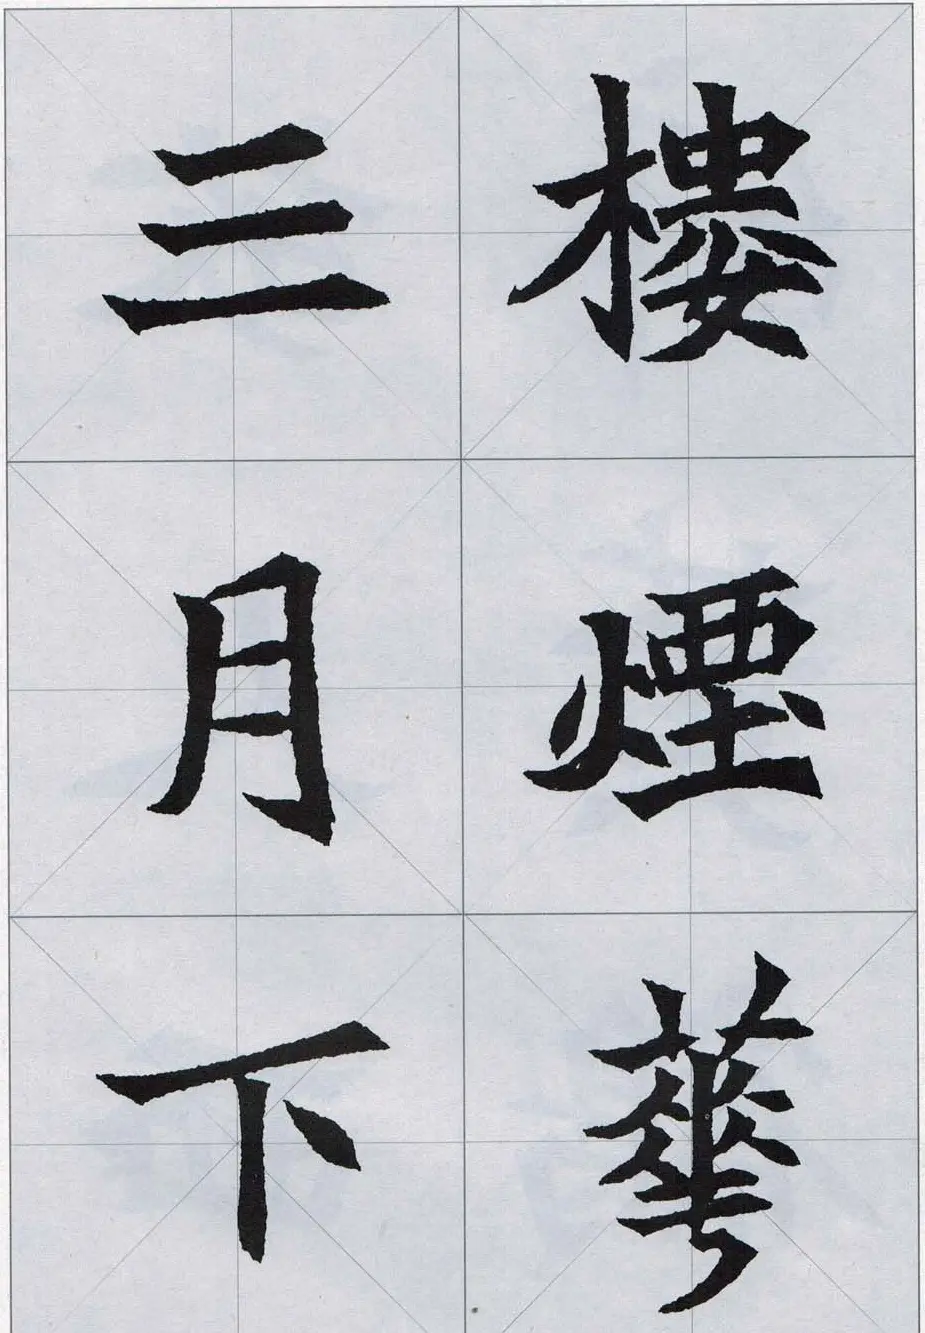 樓煙華
三月下